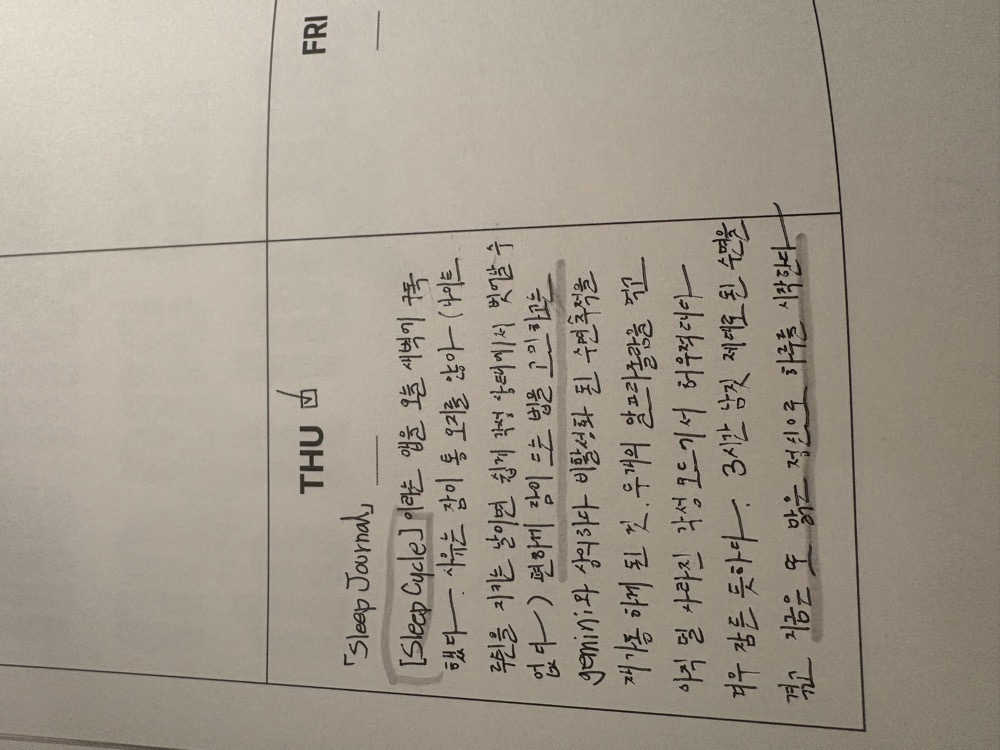 THU ☑
「Sleep Journal」
[Sleep Cycle] 이라는 앱을 오늘 새벽에 구독
했다. 사유는 잠이 통 오지를 않아 (나이트
루틴을 지키는 날이면 쉽게 각성 상태에서 벗어날 수
없다) 편하게 잠이 드는 법을 고민하고는
gemini와 상의하다 비활성화 된 수면추적을
재가동 하게 된 것. 두개의 알프라졸람을 먹고
아직 덜 사라진 각성 모드에서 허우적대다
겨우 잠든 듯하다. 3시간 남짓 제대로 된 수면을
겪고 지금은 또 맑은 정신으로 하루를 시작한다
FRI